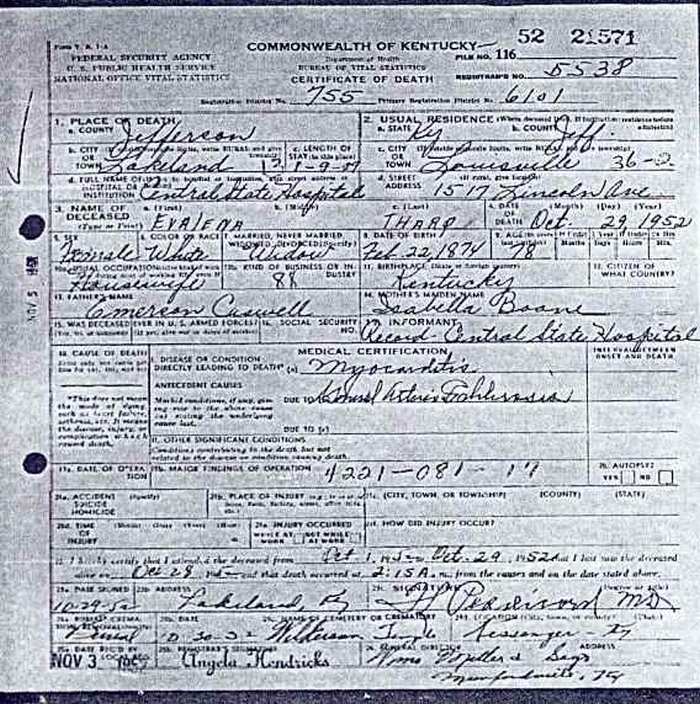 52 21571
Form V. S. 1-A
COMMONWEALTH OF KENTUCKY
FILE NO. 116
FEDERAL SECURITY AGENCY
Department of Health
U. S. PUBLIC HEALTH SERVICE
BUREAU OF VITAL STATISTICS
REGISTRAR'S NO. 5538
NATIONAL OFFICE VITAL STATISTICS
CERTIFICATE OF DEATH
Registration District No. 755 Primary Registration District No. 6101
1. PLACE OF DEATH
2. USUAL RESIDENCE (Where deceased lived. If institution: residence before admission)
a. COUNTY Jefferson
a. STATE Ky b. COUNTY Jeff.
b. CITY OR TOWN Lakeland
c. LENGTH OF STAY
c. CITY OR TOWN Louisville 36-2
d. FULL NAME OF HOSPITAL OR INSTITUTION Central State Hospital
d. STREET ADDRESS 1517 Lincoln Ave
3. NAME OF DECEASED (Type or Print)
a. (First) EVALENA
b. (Middle)
c. (Last) THARP
4. DATE OF DEATH (Month) (Day) (Year) Oct. 29, 1952
5. SEX Female
6. COLOR OR RACE White
7. MARRIED, NEVER MARRIED, WIDOWED, DIVORCED (Specify) Widow
8. DATE OF BIRTH Feb 22, 1874
9. AGE 78
Housewife
10b. KIND OF BUSINESS OR INDUSTRY
11. BIRTHPLACE Kentucky
12. CITIZEN OF WHAT COUNTRY?
13. FATHER'S NAME
Emerson Caswell
14. MOTHER'S MAIDEN NAME
Isabella Boone
15. WAS DECEASED EVER IN U. S. ARMED FORCES?
16. SOCIAL SECURITY NO.
17. INFORMANT
Record Central State Hospital
18. CAUSE OF DEATH
MEDICAL CERTIFICATION
INTERVAL BETWEEN ONSET AND DEATH
I. DISEASE OR CONDITION DIRECTLY LEADING TO DEATH* (a) Myocarditis
ANTECEDENT CAUSES
*This does not mean the mode of dying, such as heart failure, asthenia, etc. It means the disease, injury, or complication which caused death.
Morbid conditions, if any, giving rise to the above cause (a) stating the underlying cause last.
DUE TO
DUE TO (c)
II. OTHER SIGNIFICANT CONDITIONS
Conditions contributing to the death but not related to the disease or condition causing death.
19a. DATE OF OPERATION
19b. MAJOR FINDINGS OF OPERATION
4221-081-17
20. AUTOPSY?
YES NO
21a. ACCIDENT SUICIDE HOMICIDE (Specify)
21b. PLACE OF INJURY
21c. (CITY, TOWN, OR TOWNSHIP) (COUNTY) (STATE)
21d. TIME OF INJURY (Month) (Day) (Year) (Hour)
21e. INJURY OCCURRED
WHILE AT WORK NOT WHILE AT WORK
21f. HOW DID INJURY OCCUR?
22. I hereby certify that I attended the deceased from Oct 1, to Oct. 29, 1952 that I last saw the deceased
alive on Oct 28 and that death occurred at 2:15A m., from the causes and on the date stated above.
23a. DATE SIGNED 10-29-52
23b. ADDRESS Lakeland, Ky
23c. SIGNATURE M.D.
DATE 10 30 52
NAME OF CEMETERY OR CREMATORY Temple
LOCATION Ky
DATE REC'D BY LOCAL REG. NOV 3 1952
REGISTRAR'S SIGNATURE
Angela Hendricks
FUNERAL DIRECTOR
ADDRESS